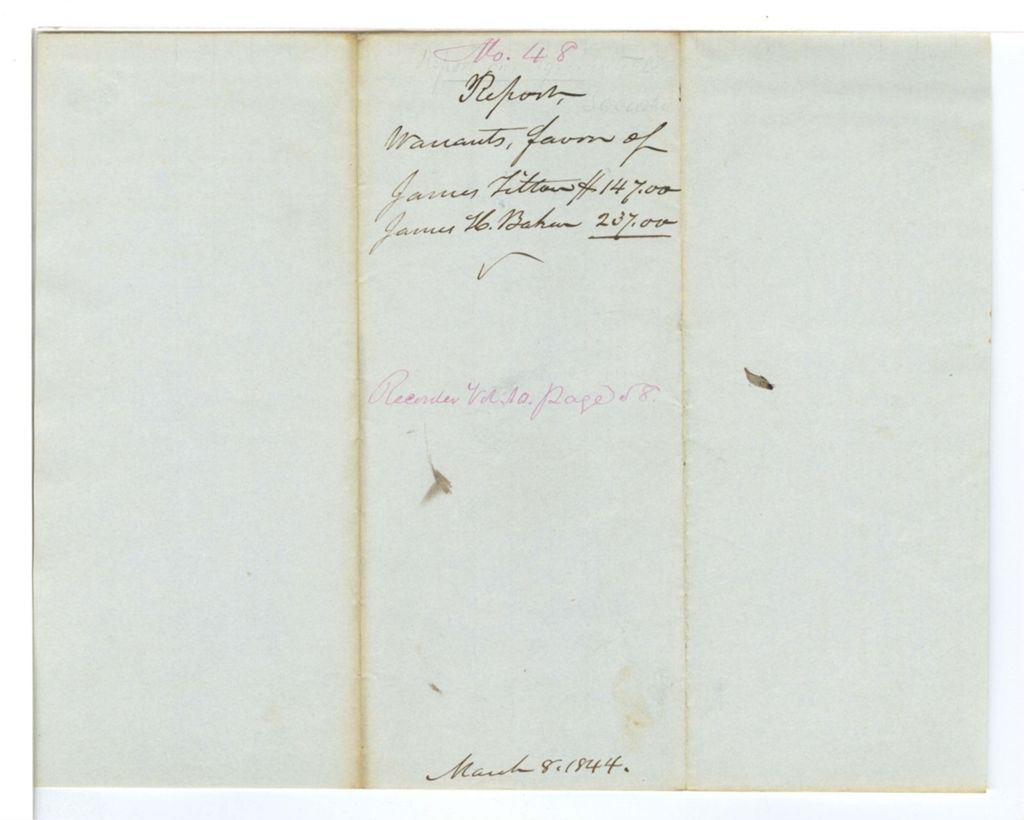 No. 48
Report,
Warrants, favor of
James Titton $147.00
James H. Baker 237.00
Recorder Vol. 10. page 58.
March 8. 1844.